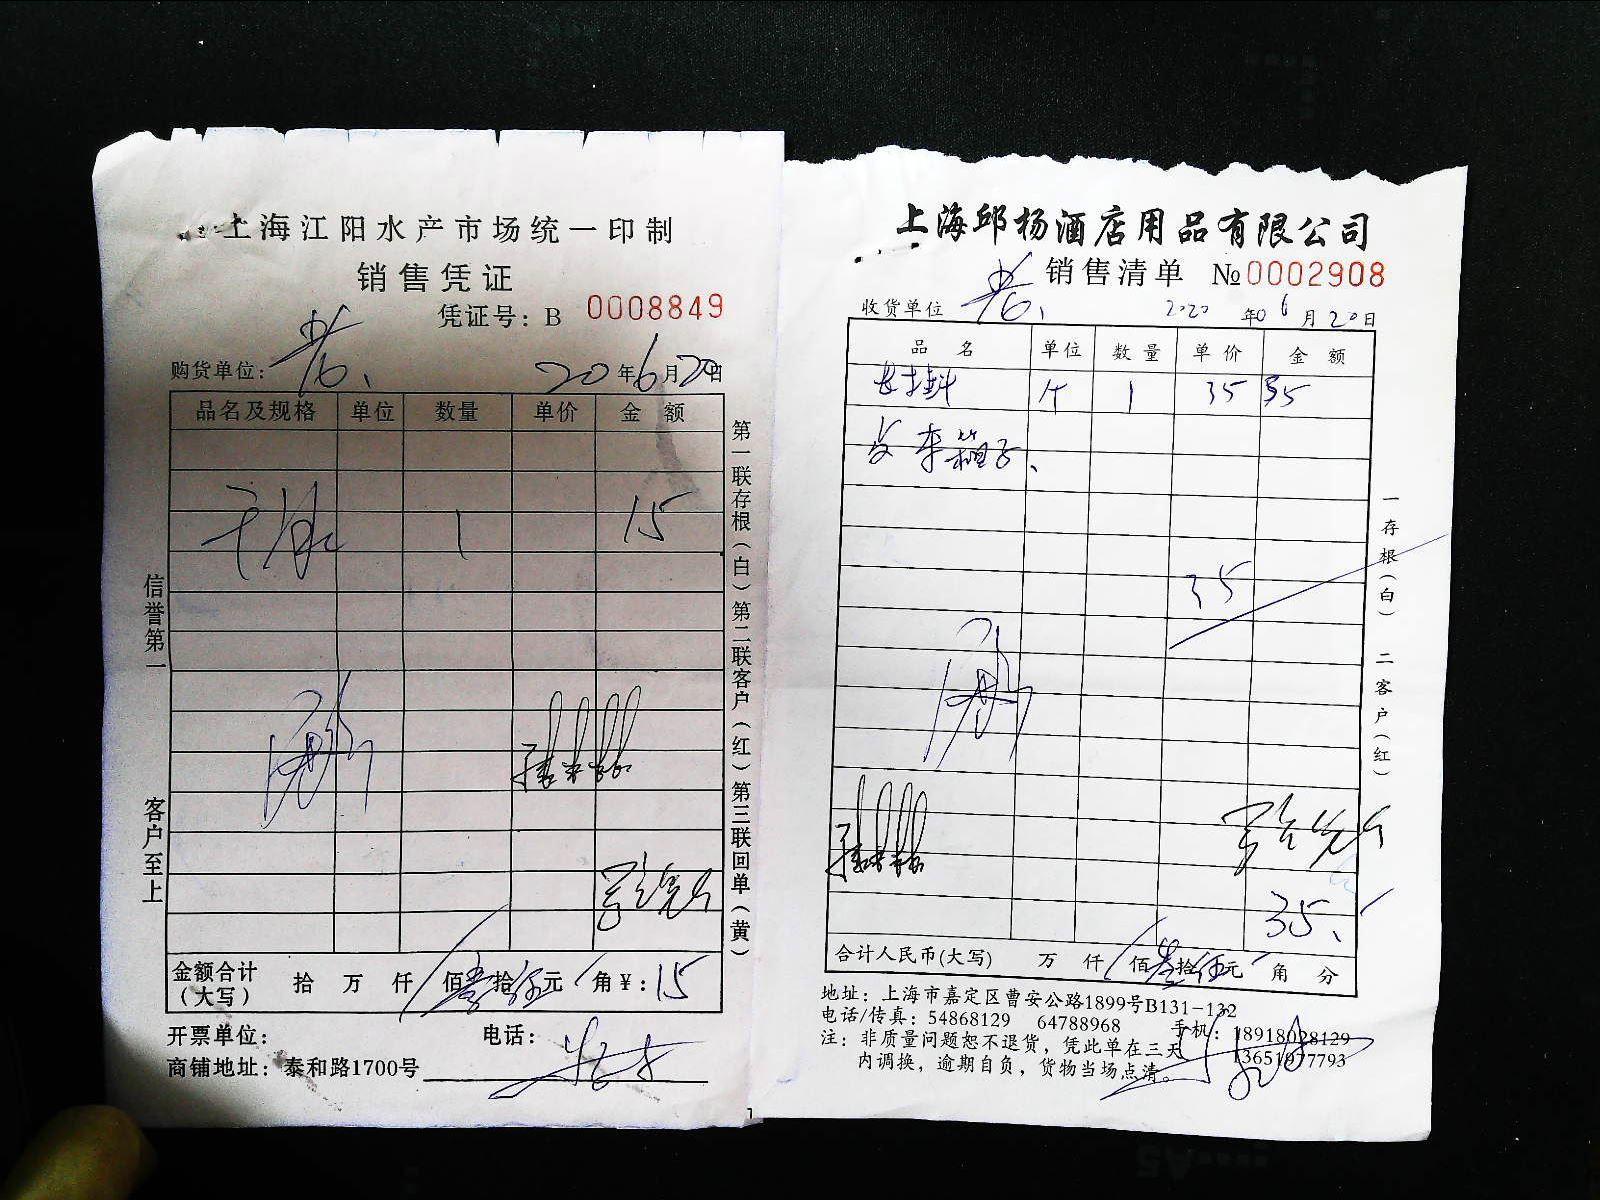 上海江阳水产市场统一印制
销售凭证
凭证号：B 0008849
购货单位： 20年6月20日
品名及规格 单位 数量 单价 金 额
干冰 1 15
金额合计（大写） 拾 万 仟 佰壹拾伍元 角￥：15
开票单位： 电话：
商铺地址：泰和路1700号
信誉第一 客户至上
第一联存根（白）第二联客户（红）第三联回单（黄）
上海邱杨酒店用品有限公司
销售清单 №0002908
收货单位 2020年06月20日
品 名 单位 数 量 单 价 金 额
个 1 35 35
35
35
合计人民币(大写) 万 仟 佰叁拾伍元 角 分
地址：上海市嘉定区曹安公路1899号B131-132
电话/传真：54868129 64788968 手机：18918028129
13651977793
注：非质量问题恕不退货，凭此单在三天
内调换，逾期自负，货物当场点清。
一存根（白） 二客户（红）